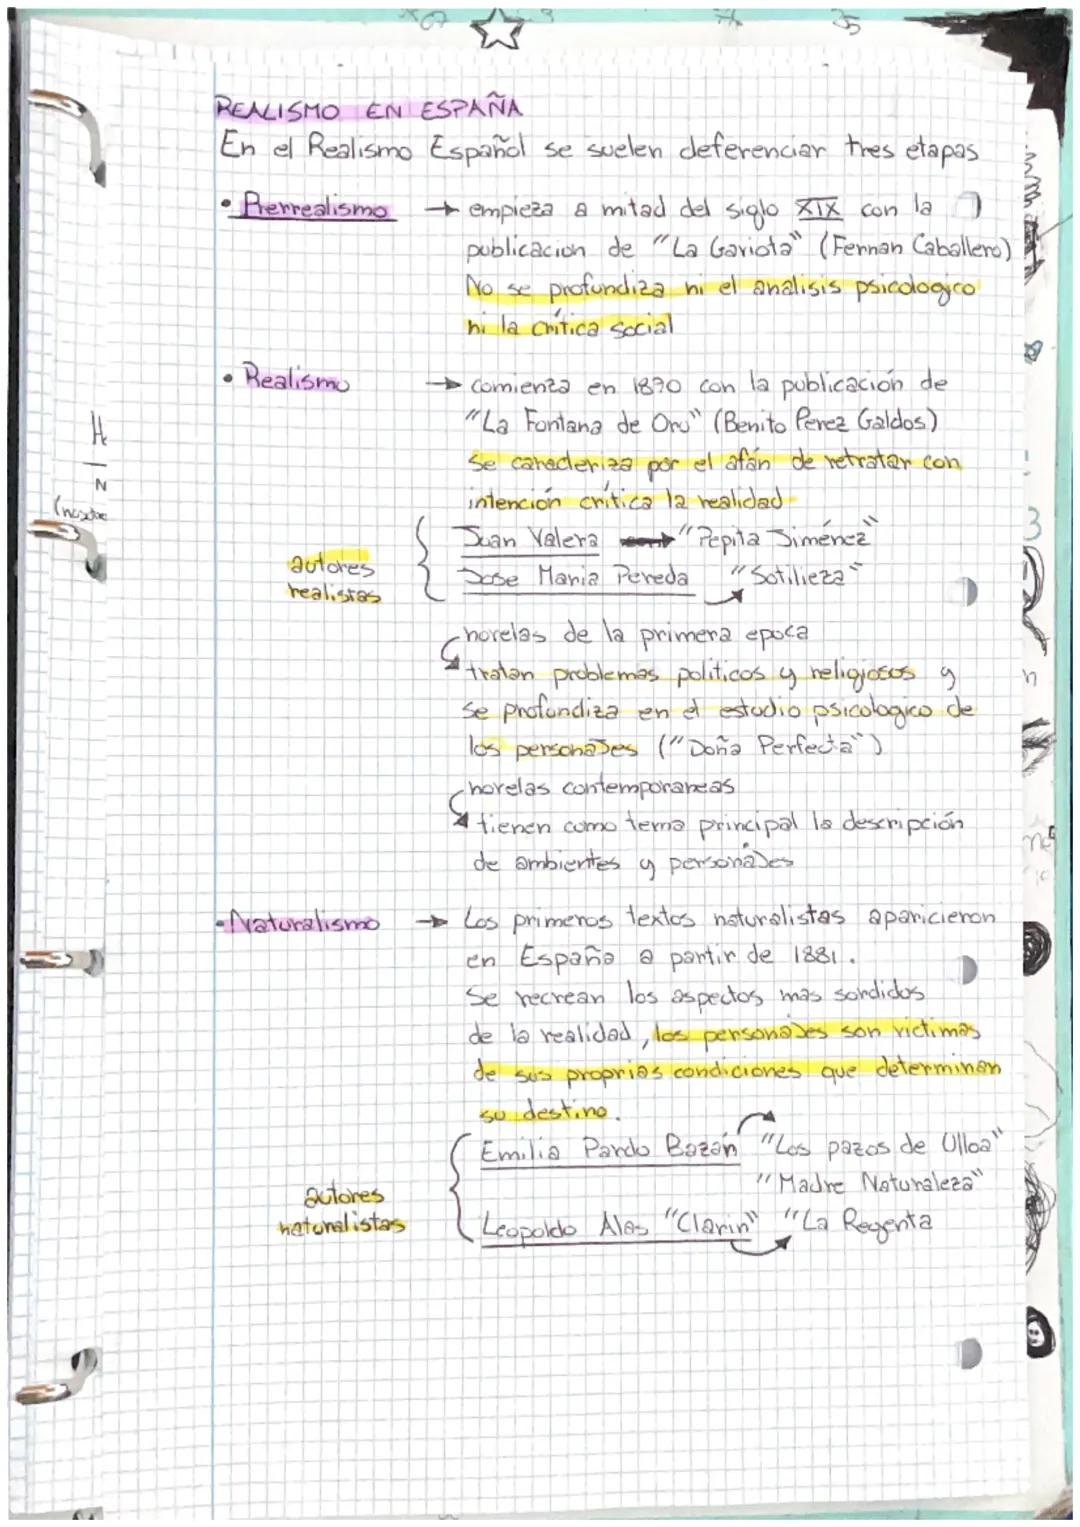 REALISMO EN ESPAÑA
En el Realismo Español se suelen deferenciar tres etapas
• Prerrealismo → empieza a mitad del siglo XIX con la
publicacion de "La Gaviota" (Fernan Caballero)
No se profundiza ni el analisis psicologico
ni la crítica social
• Realismo → comienza en 1870 con la publicación de
"La Fontana de Oro" (Benito Perez Galdos)
Se caracteriza por el afán de retratar con
intención crítica la realidad
autores realistas
Juan Valera → "Pepita Jiménez"
Jose Maria Pereda "Sotilieza"
novelas de la primera epoca
tratan problemas politicos y religiosos y
se profundiza en el estudio psicologico de
los personajes ("Doña Perfecta")
novelas contemporaneas
tienen como tema principal la descripción
de ambientes y personajes
• Naturalismo → Los primeros textos naturalistas aparicieron
en España a partir de 1881.
Se recrean los aspectos mas sordidos
de la realidad, los personajes son victimas
de sus proprias condiciones que determinan
su destino.
autores naturalistas
Emilia Pardo Bazán "Los pazos de Ulloa"
"Madre Naturaleza"
Leopoldo Alas "Clarin" "La Regenta